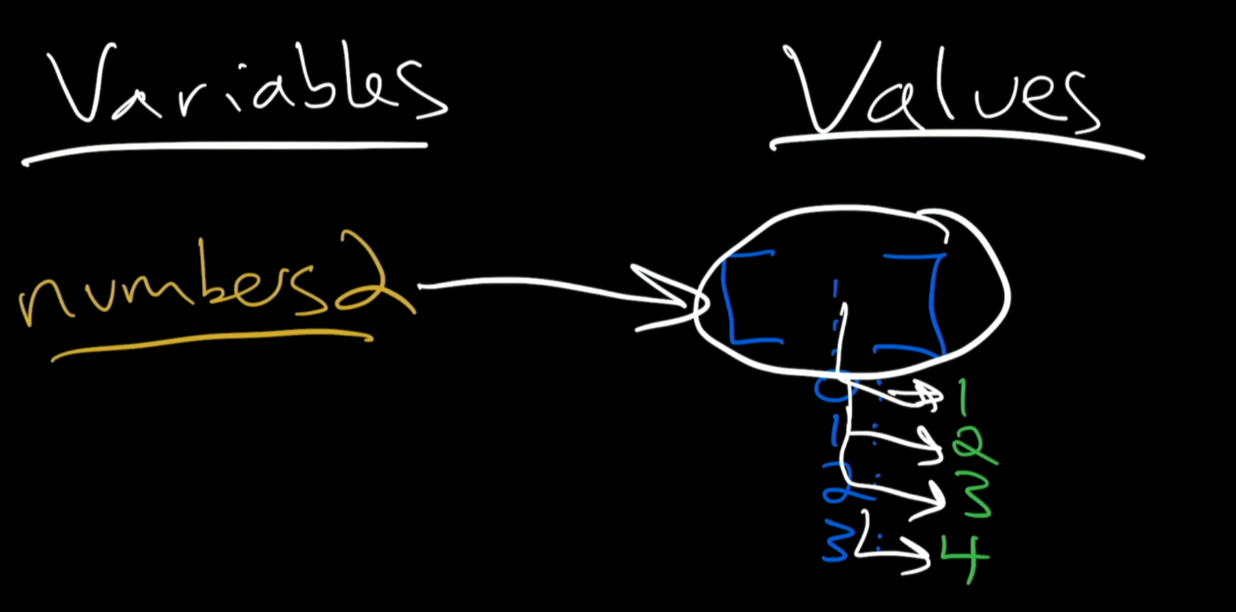 Variables Values
numbers2 [ ]
0 : 1
1 : 2
2 : 3
3 : 4